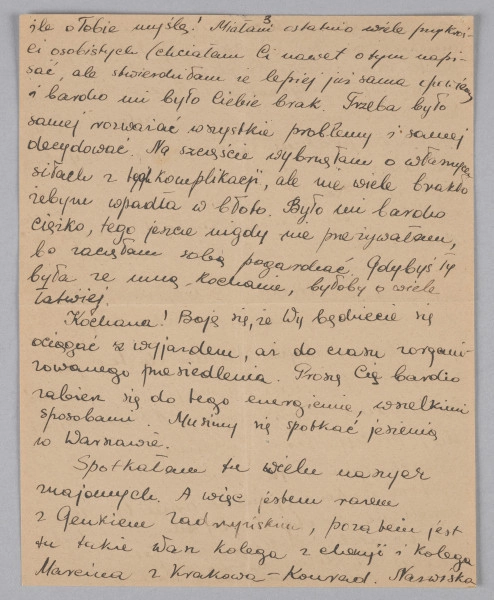 3
źle o Tobie myślą! Miałam ostatnio wiele przykroś-
ci osobistych (chciałam Ci nawet o tym napi-
sać, ale stwierdziłam że lepiej już sama
i bardzo mi było Ciebie brak. Trzeba było
samej rozważać wszystkie problemy i samej
decydować. Na szczęście wybrnęłam o własnych
siłach z tych komplikacji, ale nie wiele brakło
żebym wpadła w błoto. Było mi bardzo
ciężko, tego jeszcze nigdy nie przeżywałam,
bo zaczęłam sobą pogardzać. Gdybyś Ty
była ze mną, Kochanie, byłoby o wiele
łatwiej.
Kochana! Boję się, że Wy będziecie się
ociągać z wyjazdem, aż do czasu zorgani-
zowanego przesiedlenia. Proszę Cię bardzo
zabierz się do tego energicznie, wszelkimi
sposobami. Musimy się spotkać jesienią
w Warszawie.
Spotkałam tu wielu naszych
znajomych. A więc jestem razem
z Genkiem, pozatem jest
tu także Wasz kolega z chemji i kolega
Marcina z Krakowa - Konrad. Nazwiska